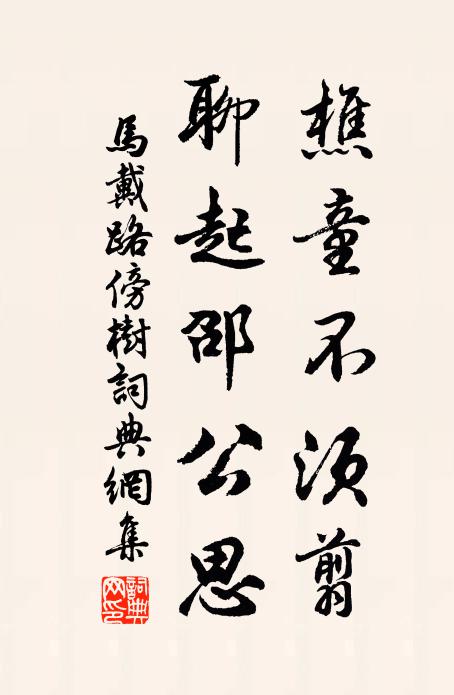 樵童不須翦
聊起邵公思
馬戴路傍樹詞典網集
詞典
网印